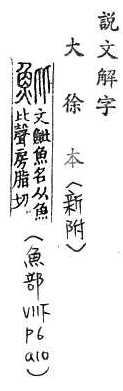 說文解字
大徐本〈新附〉
魮 文魮魚名从魚
比聲房脂切
(魚部 VIII下 P6 a10)